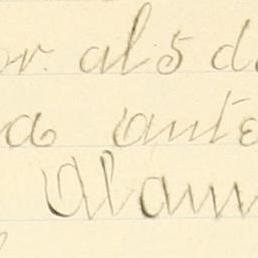 or. al 5 d
a ante
Alam